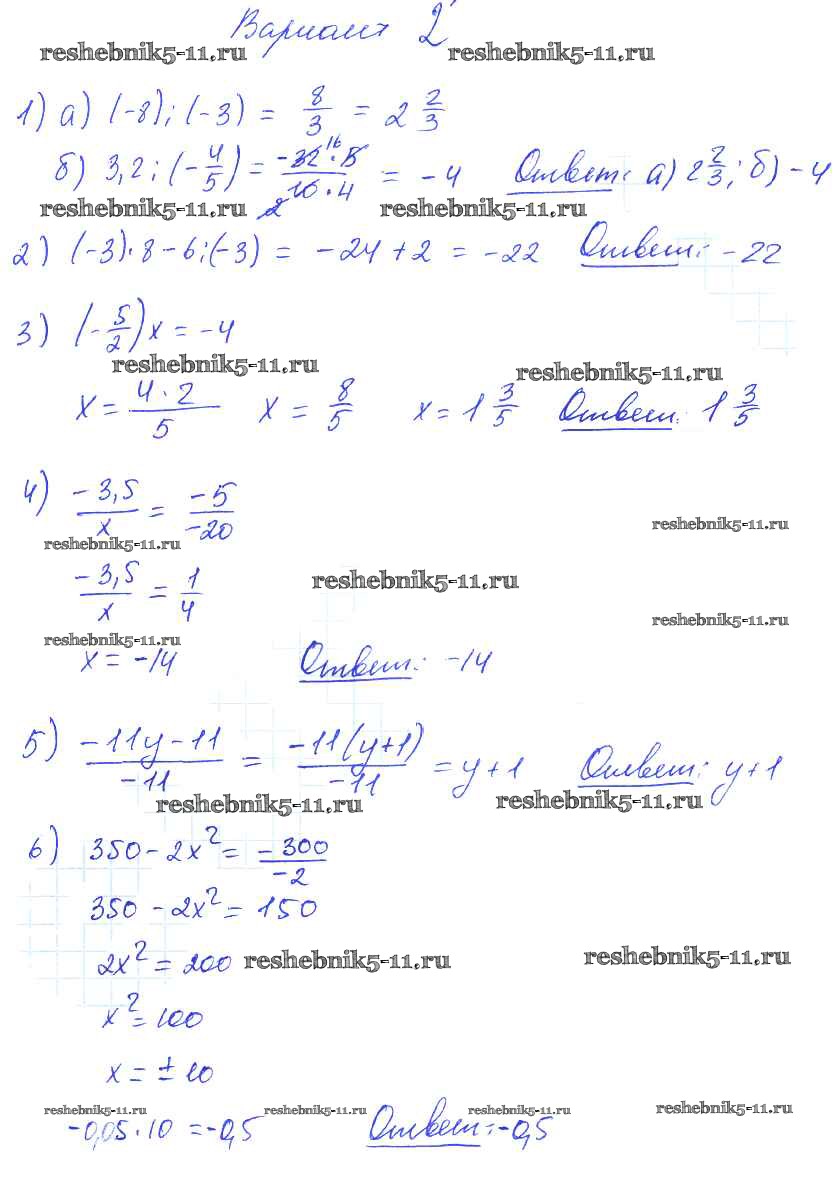 Вариант 2
reshebnik5-11.ru reshebnik5-11.ru
1) а) (-8):(-3) = 8/3 = 2 2/3
б) 3,2:(-4/5) = -32 16 · 5 / 10 · 4 2 = -4 Ответ: а) 2 2/3; б) -4
reshebnik5-11.ru reshebnik5-11.ru
2) (-3)·8-6:(-3) = -24+2 = -22 Ответ: -22
3) (-5/2)x = -4
reshebnik5-11.ru reshebnik5-11.ru
x = 4·2/5 x = 8/5 x = 1 3/5 Ответ: 1 3/5
4) -3,5/x = -5/-20
reshebnik5-11.ru reshebnik5-11.ru
-3,5/x = 1/4
reshebnik5-11.ru
reshebnik5-11.ru reshebnik5-11.ru
x = -14 Ответ: -14
5) -11y-11/-11 = -11(y+1)/-11 = y+1 Ответ: y+1
reshebnik5-11.ru reshebnik5-11.ru
6) 350-2x² = -300/-2
350-2x² = 150
2x² = 200 reshebnik5-11.ru reshebnik5-11.ru
x² = 100
x = ±10
reshebnik5-11.ru reshebnik5-11.ru reshebnik5-11.ru reshebnik5-11.ru
-0,05·10 = -0,5 Ответ: -0,5